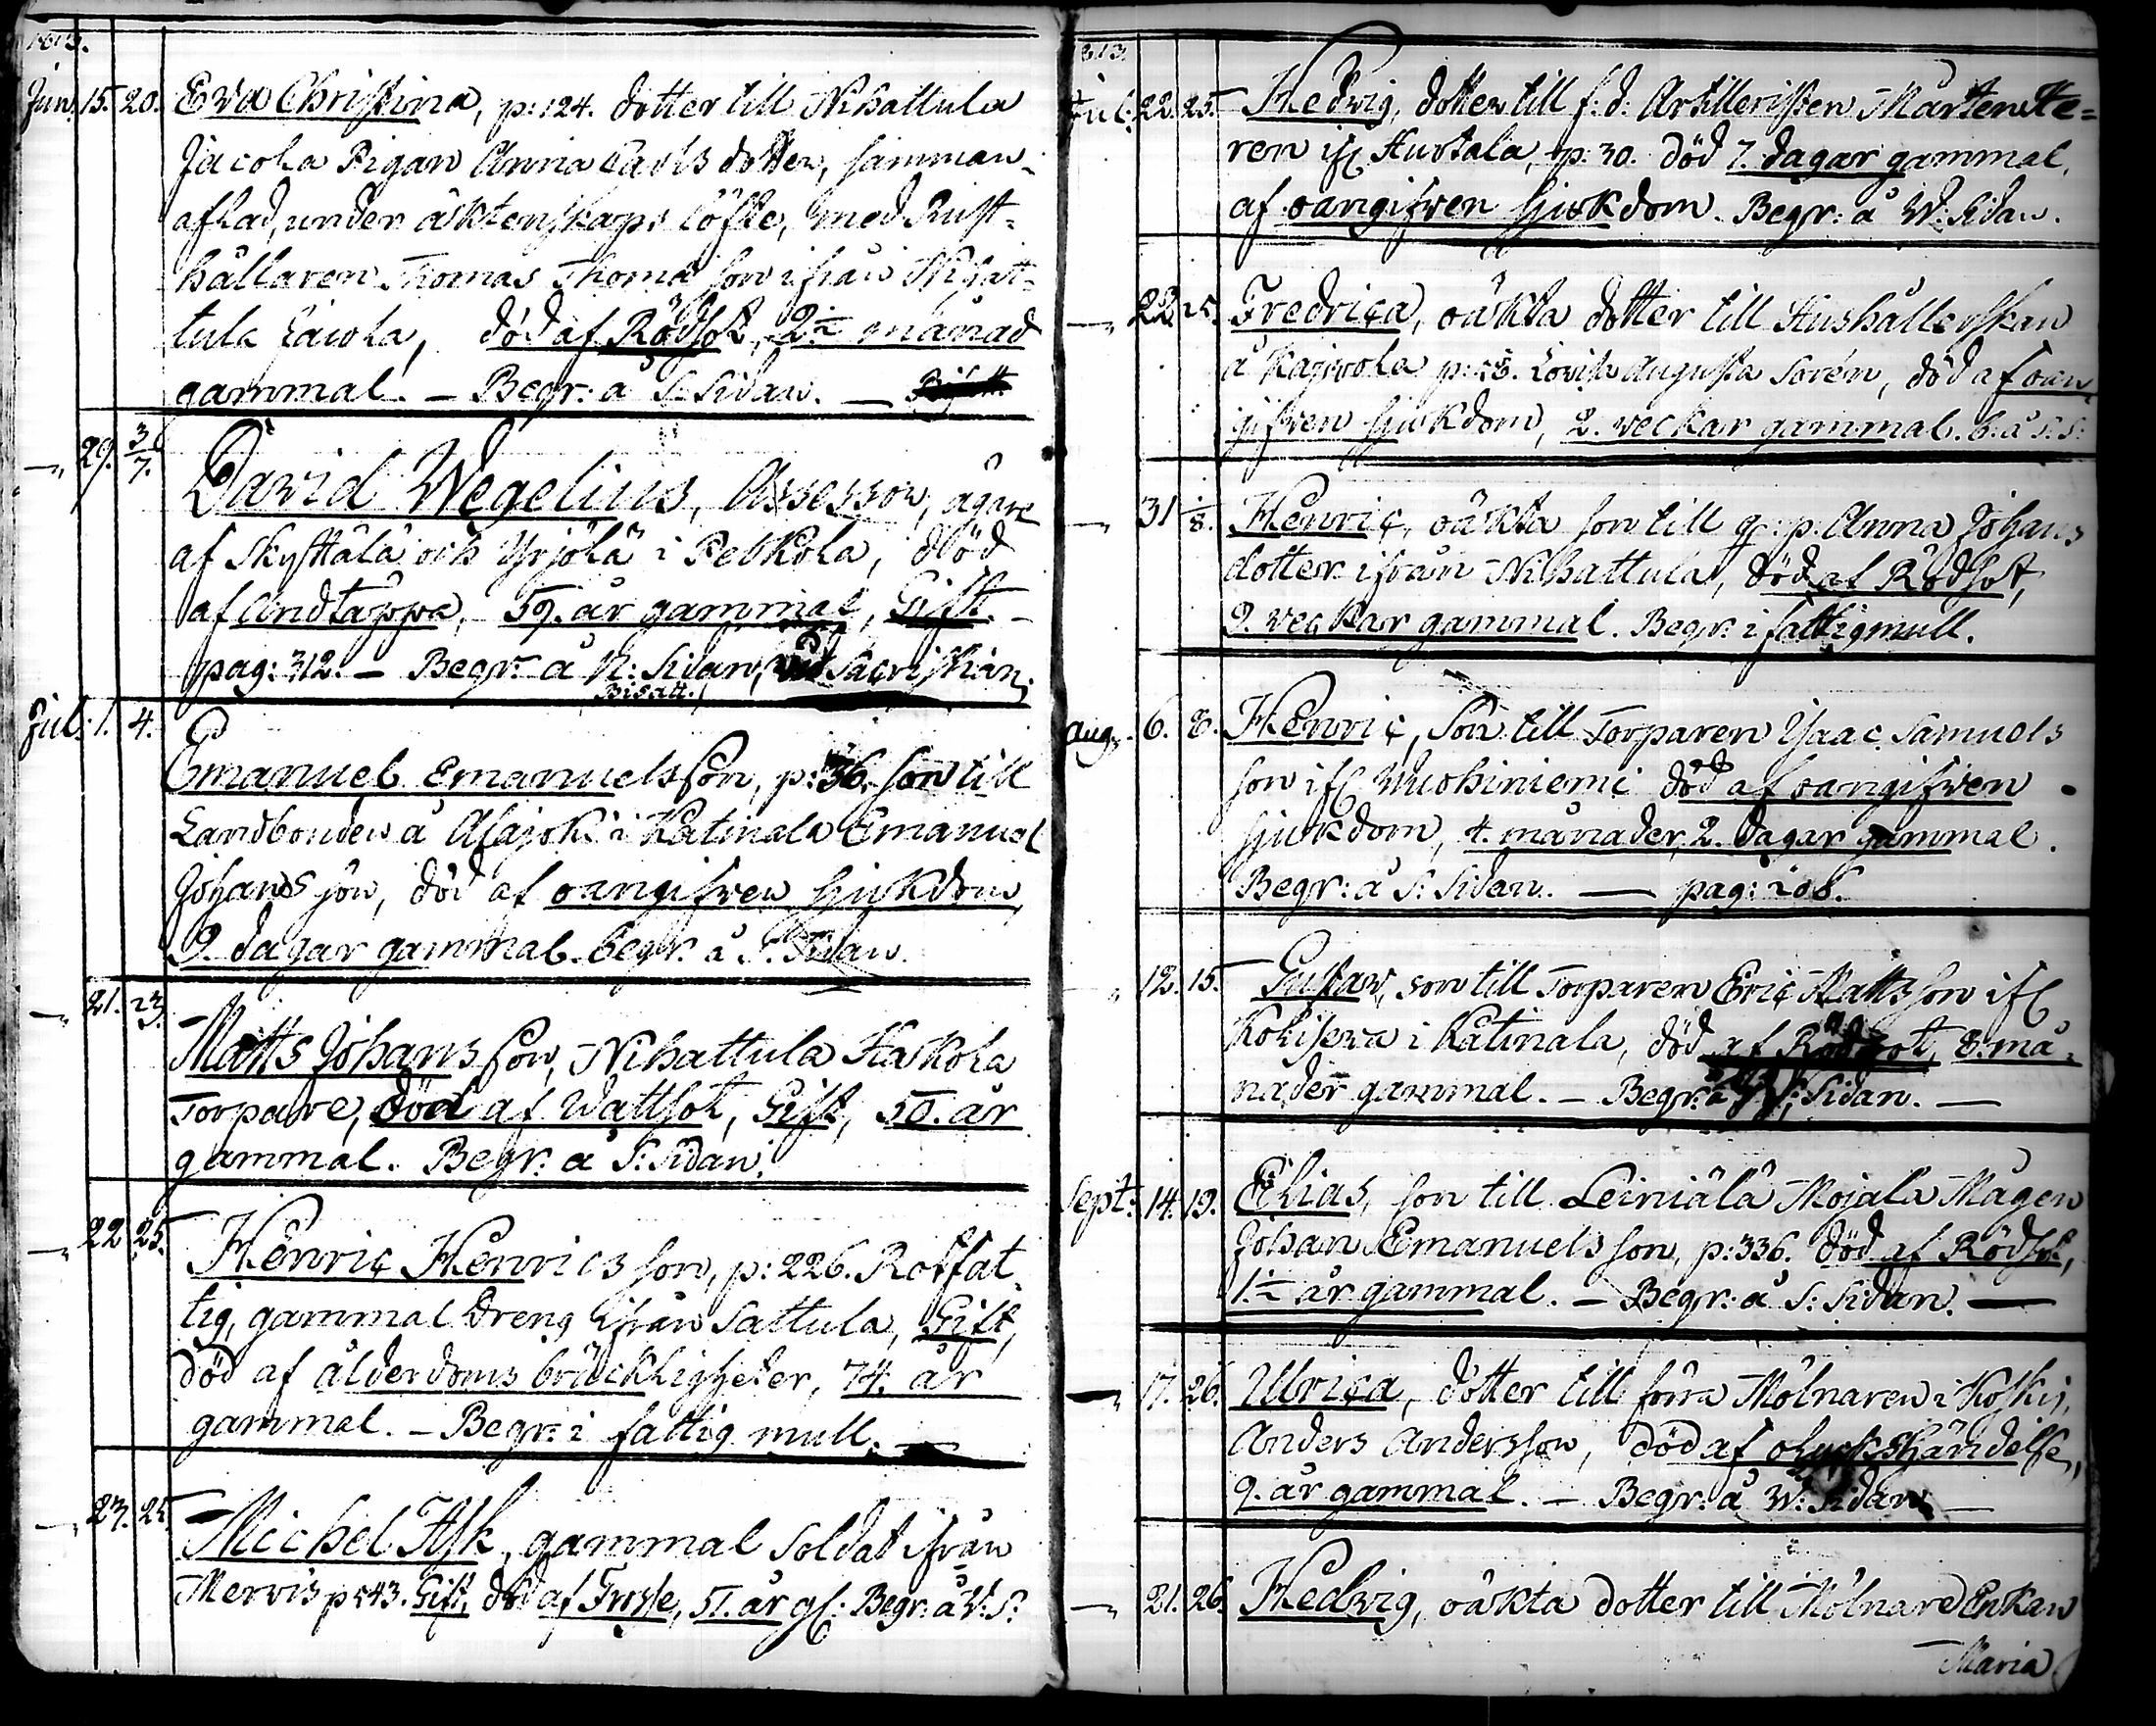 1813.
Jun. 15. 20. Eva Christina, p: 124. dotter till Nihattula
Jacola Pigan Anna Carls dotter, samman-
aflad, under äktenskaps löfte, med Rust-
hållaren Thomas Thomæ son ifrån Nihat-
tula Jacola, död af Rödsot, 2½ månad
gammal. – Begr: å S: Sidan. –
–„ 29. 3/7. David Wegelius, Assessor, ägare
af Skyttälä och Yrjölä i Pelkola, död
af Andtäppa, 59. år gammal, Gift. –
pag: 312. – Begr: å N: Sidan, vid Sacristian.
Jul: 1. 4. Emanuel Emanuelsson, p: 36. son till
Landbonden å Alajoki i Katinala Emanuel
Johans son, död af oangifven sjukdom,
9. dagar gammal. begr. å S: Sidan.
–„ 21. 23. Matts Johans son, Nihattula Kakola
Torpare, död af Wattsot, Gift, 50. år
gammal. Begr: å S: Sidan.
–„ 22 25. Henric Henrics son, p: 226. Rotfat-
tig, gammal Dreng ifrån Sattula, Gift,
död af ålderdoms bräckligheter, 74. år
gammal. – Begr: i fattig mull. –
–„ 23. 25. Michel Ask, gammal Soldat ifrån
Mervis p 543. Gift, död af Frosse, 51. år gl: Begr: å V: S:
1813.
Jul: 22. 25. Hedvig, dotter till f: d: Artilleristen Mårten He-
ren ifr Hurtala, p: 30. död 7. dagar gammal,
af oangifven sjukdom. Begr: å W: Sidan.
–„ 22. 25. Fredrica, oäkta dotter till Hushållerskan
å Kajvola p: 55. Lovisa Augusta Sorén, död af oan-
gifven sjukdom, 2. veckar gammal. b. å S: S:
–„ 31 1/8. Henric, oäkta son till q: p. Anna Johans
dotter ifrån Nihattula, död af Rödsot,
9. veckar gammal. Begr: i fattigmull.
Aug. 6. 8. Henric, Son till Torparen Isaac Samuels
son ifr Wuohiniemi död af oangifven
sjukdom, 4. månader, 2. dagar gammal.
Begr: å S: Sidan. – pag: 208.
–„ 12. 15. Gustav, son till Torparen Eric Mattsson ifr
Kohiseva i Katinala, död af Rödsot, 8. må-
nader gammal. – Begr: å Sidan. –
Sept: 14. 19. Elias, son till Leiniälä Mojala Mågen
Johan Emanuels son, p: 336. död af Rödsot,
1.½ år gammal. – Begr: å S: Sidan. –
–„ 17. 26. Ulrica, dotter till förra Mölnaren i Koski,
Anders Andersson, död af olyckshändelse,
9. år gammal. – Begr: å W: Sidan. –
–„ 21. 26. Hedvig, oäkta dotter till Mölnare Enkan
Maria